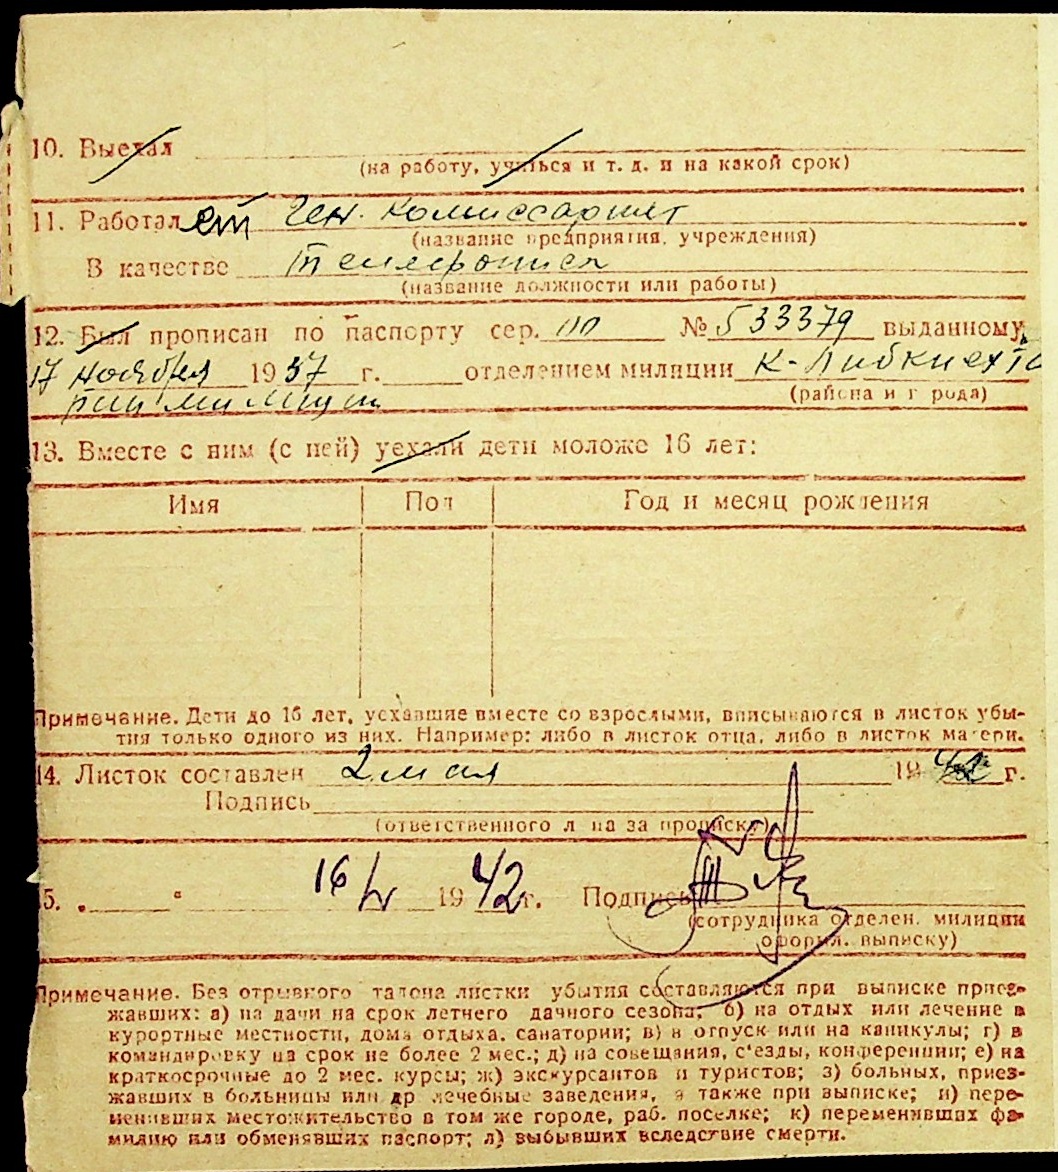 10. Выехал
(на работу, учиться и т. д. и на какой срок)
11. Работал ет Ген. Комиссариат
(название предприятия, учреждения)
В качестве Телефонист
(название должности или работы)
12. Был прописан по паспорту сер. ПП № 533379 выданному
17 ноября 1937 г. отделением милиции К-Либкнехта
рай милиции
(района и города)
13. Вместе с ним (с ней) уехали дети моложе 16 лет:
Имя Пол Год и месяц рождения
Примечание. Дети до 16 лет, уехавшие вместе со взрослыми, вписываются в листок убы-
тия только одного из них. Например: либо в листок отца, либо в листок матери.
14. Листок составлен 2 мая 1942 г.
Подпись
(ответственного лица за прописку)
15. „ “ 16/V 1942 г. Подпись
(сотрудника отделен. милиции
оформл. выписку)
Примечание. Без отрывного талона листки убытия составляются при выписке приез-
жавших: а) на дачи на срок летнего дачного сезона; б) на отдых или лечение в
курортные местности, дома отдыха, санатории; в) в отпуск или на каникулы; г) в
командировку на срок не более 2 мес.; д) на совещания, с'езды, конференции; е) на
краткосрочные до 2 мес. курсы; ж) экскурсантов и туристов; з) больных, приез-
жавших в больницы или др лечебные заведения, а также при выписке; и) пере-
менивших местожительство в том же городе, раб. поселке; к) переменивших фа-
милию или обменявших паспорт; л) выбывших вследствие смерти.